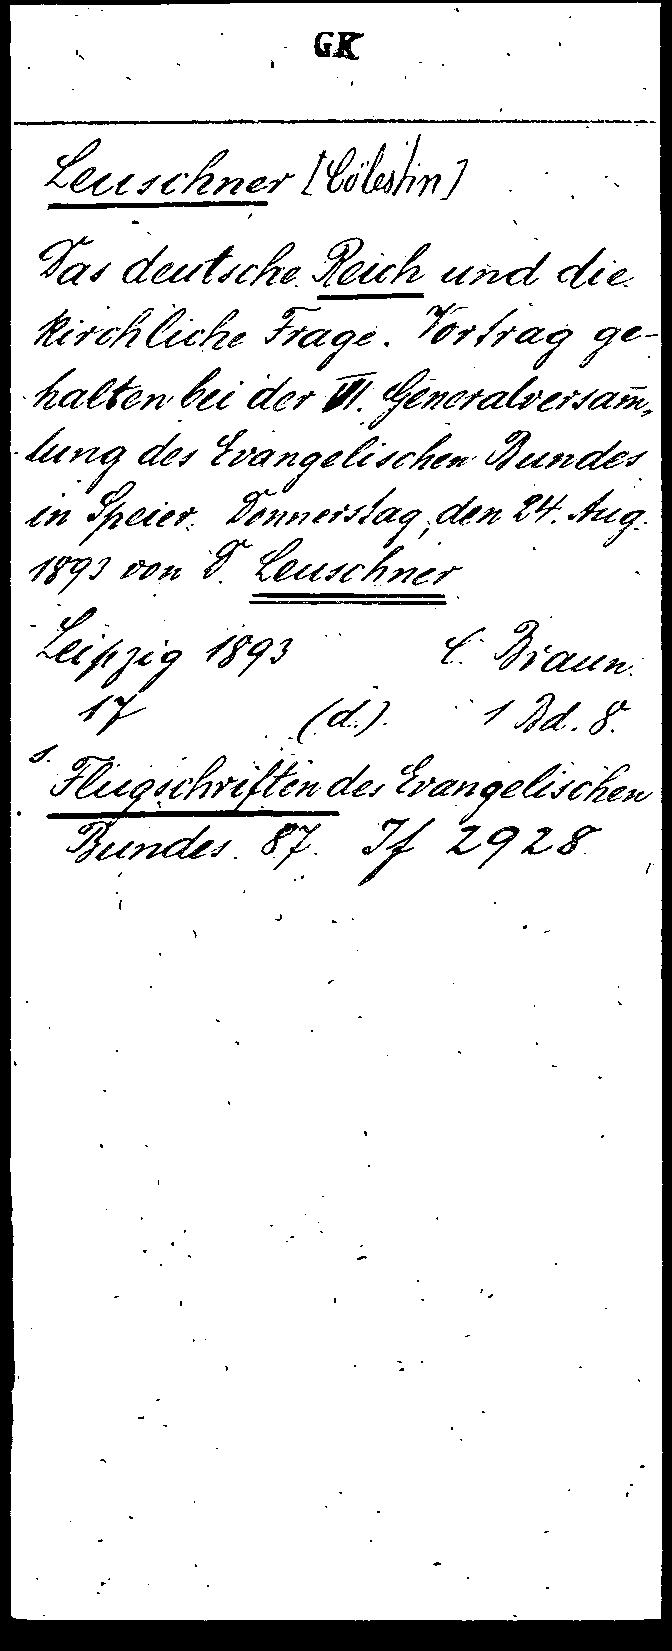 GK
Leuschner [Cölestin]
Das deutsche Reich und die
kirchliche Frage. Vortrag ge-
halten bei der VI. Generalversam̄-
lung des Evangelischen Bundes
in Speier. Donnerstag, den 24. Aug.
1893 von D. Leuschner
Leipzig 1893 C. Braun.
17 (d.). 1 Bd. 8.
s. Flugschriften des Evangelischen
Bundes. 87. If 2928